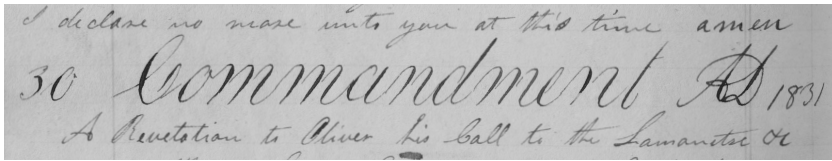 I declare no more unto you at this time amen
30 Commandment AD 1831
A Revelation to Oliver his Call to the Lamanites &c